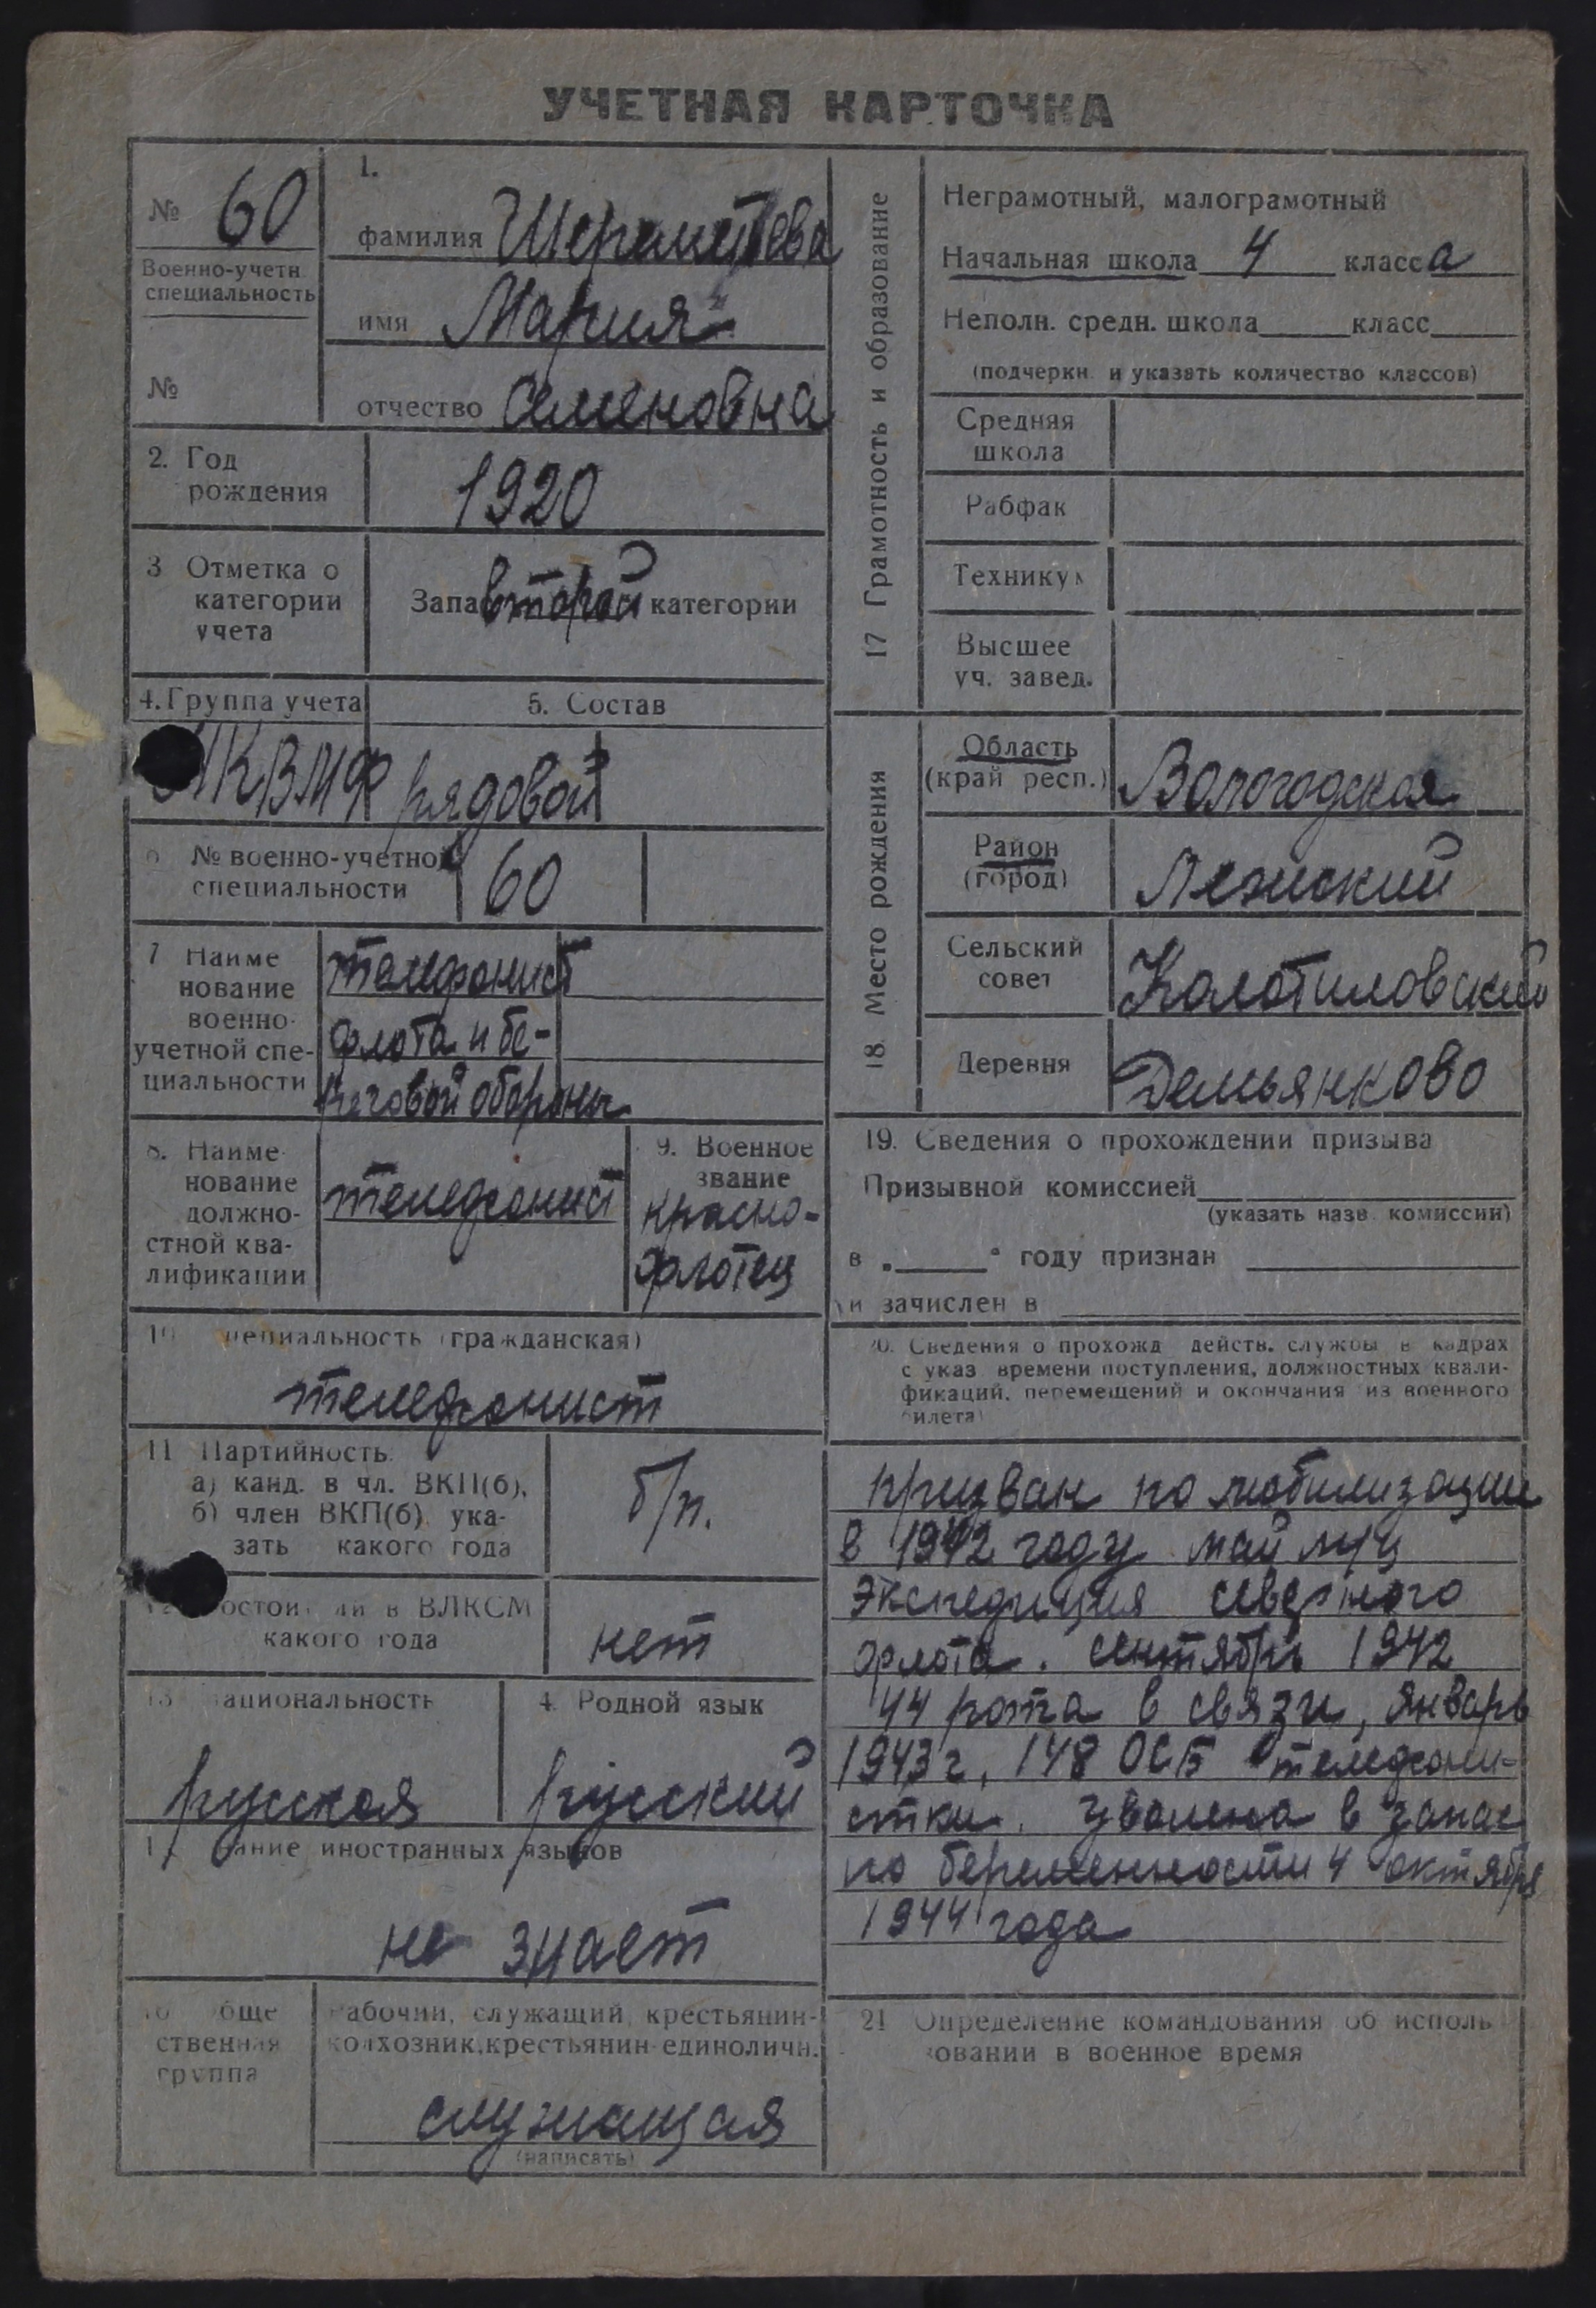 УЧЕТНАЯ КАРТОЧКА
№ 60
Военно-учетн.
специальность
№
1.
фамилия Шереметьева
имя Мария
отчество Семеновна
2. Год
рождения
1920
3 Отметка о
категории
учета
Запа второй категории
4. Группа учета
5. Состав
КВМФ
рядовой
№ военно-учетной
специальности
60
7 Наиме
нование
военно-
учетной спе-
циальности
телефонист
флота и бе-
реговой обороны
8. Наиме-
нование
должно-
стной ква-
лификации
телефонист
9. Военное
звание
красно-
флотец
10 специальность (гражданская)
телефонист
11 Партийность
а) канд. в чл. ВКП(б),
б) член ВКП(б) ука-
зать какого года
б/п.
в ВЛКСМ
какого года
нет
13 национальность
русская
4. Родной язык
русский
1 ание иностранных языков
не знает
обще
ственная
группа
Рабочий, служащий, крестьянин-
колхозник, крестьянин-единоличн.
служащая
(написать)
17 Грамотность и образование
Неграмотный, малограмотный
Начальная школа 4 класса
Неполн. средн. школа класс
(подчеркн. и указать количество классов)
Средняя
школа
Рабфак
Технику
Высшее
уч. завед.
18. Место рождения
Область
(край респ.)
Вологодская
Район
(город)
Лежский
Сельский
совет
Колотиловский
Деревня
Демьянково
19. Сведения о прохождении призыва
Призывной комиссией
(указать назв. комиссии)
в " " году признан
и зачислен в
20. Сведения о прохожд действ. службы в кадрах
с указ времени поступления, должностных квали-
фикаций, перемещений и окончания из военного
билета)
призван по мобилизации
в 1942 году май м/ц
Экспедиция северного
флота. сентябрь 1942
44 рота в связи, январь
1943 г, 148 ОСБ телефони-
стки. уволена в запас
по беременности 4 октября
1944 года
21 Определение командования об исполь
зовании в военное время